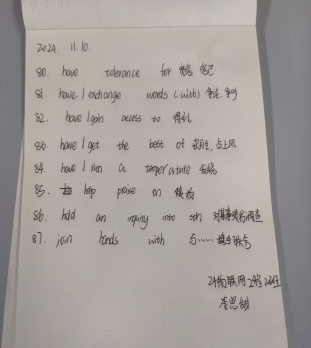 2024. 11. 10.
80. have tolerance for 宽容 容忍
81. have / exchange words (with) 争论, 争吵
82. have / gain access to 得到
83. have / get the best of 战胜, 占上风
84. have / run a temperature 发烧
85. heap praise on 赞扬
86. hold an inquiry into sth 对某事进行调查
87. join hands with 与……携手联合
24物联网 2班